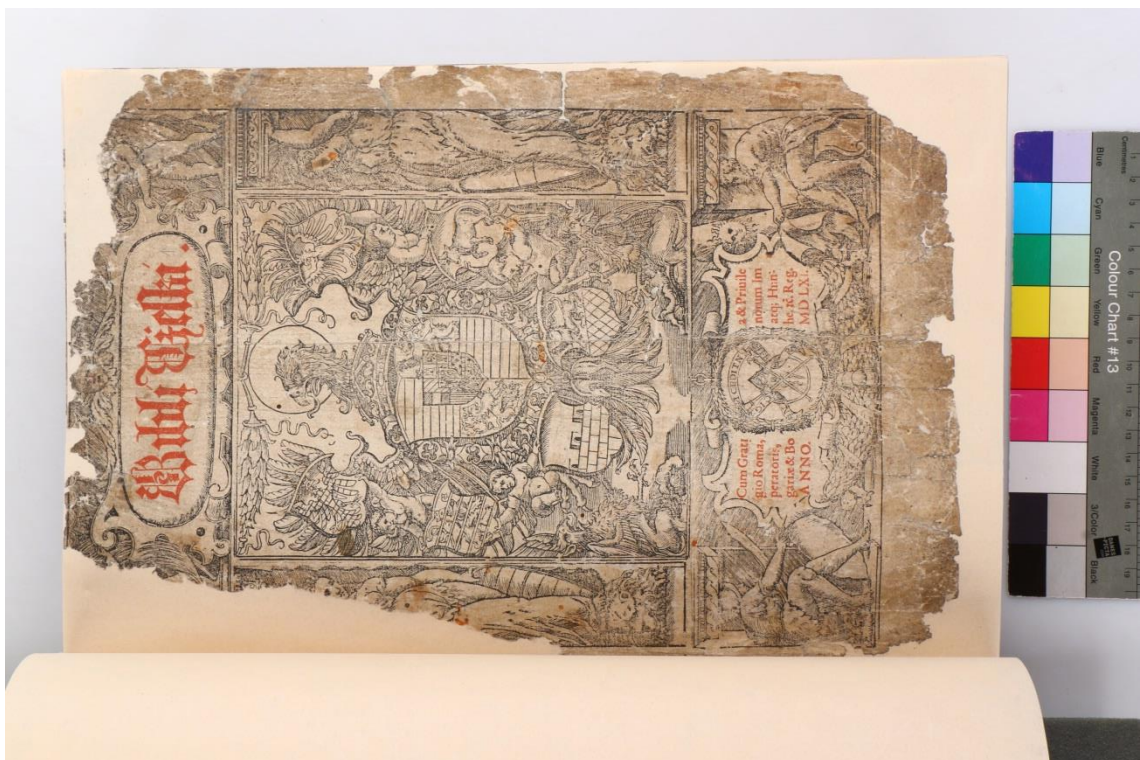 Biblí Cžeská.
Cum Grati a & Priuile
gio Roma, norum im
peratoris, acq; Hun-
gariæ & Bo he. &c. Reg.
ANNO. MDLXI.
Colour Chart #13
Centimetres
Blue Cyan Green Yellow Red Magenta White 3/Color Black